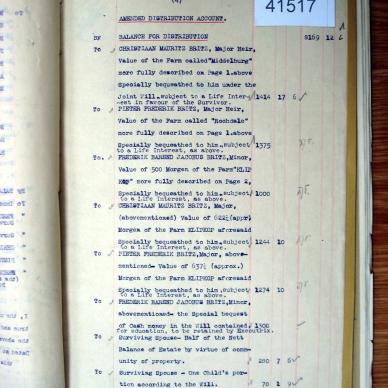 (4)
41517
AMENDED DISTRIBUTION ACCOUNT.
BY BALANCE FOR DISTRIBUTION 8169 12
To CHRISTIAAN MAURITZ BRITZ, Major Heir,
Value of the Farm called "Middelburg"
more fully described on Page 1.above
Specially bequeathed to him under the
Joint Will..subject to a Life Inter-
-est in favour of the Survivor. 1414 17 6
To PIETER FREDERIK BRITZ, Major Heir
Value of the Farm called "Rochdale"
more fully described on Page 1.above
Specially bequeathed to him.subject 1375
to a Life Interest, as above.
To FREDERIK BAREND JACOBUS BRITZ,Minor,
Value of 500 Morgen of the Farm "KLIP
KOP" more fully described on Page 2,
Specially bequeathed to him.subject 1000
to a Life Interest, as above.
To CHRISTIAAN MAURITZ BRITZ, Major,
(abovementioned) Value of 622½(appr)
Morgen of the Farm KLIPKOP aforesaid
Specially bequeathed to him.subject 1244 10
to a Life Interest, as above.
To PIETER FREDERIK BRITZ,Major, above-
mentioned- Value of 637½ (approx.)
Morgen of the Farm KLIPKOP aforesaid
Specially bequeathed to him.subject 1274 10
to a Life Interest, as above.
To FREDERIK BAREND JACOBUS BRITZ,Minor,
abovementioned- the Special bequest
of Cash money in the Will contained, 1300
for education, to be retained by Executrix.
To Surviving Spouse- Half of the Nett
Balance of Estate by virtue of comm-
unity of property. 280 7 6
To Surviving Spouse - One Child's por-
tion according to the Will. 70 1 9